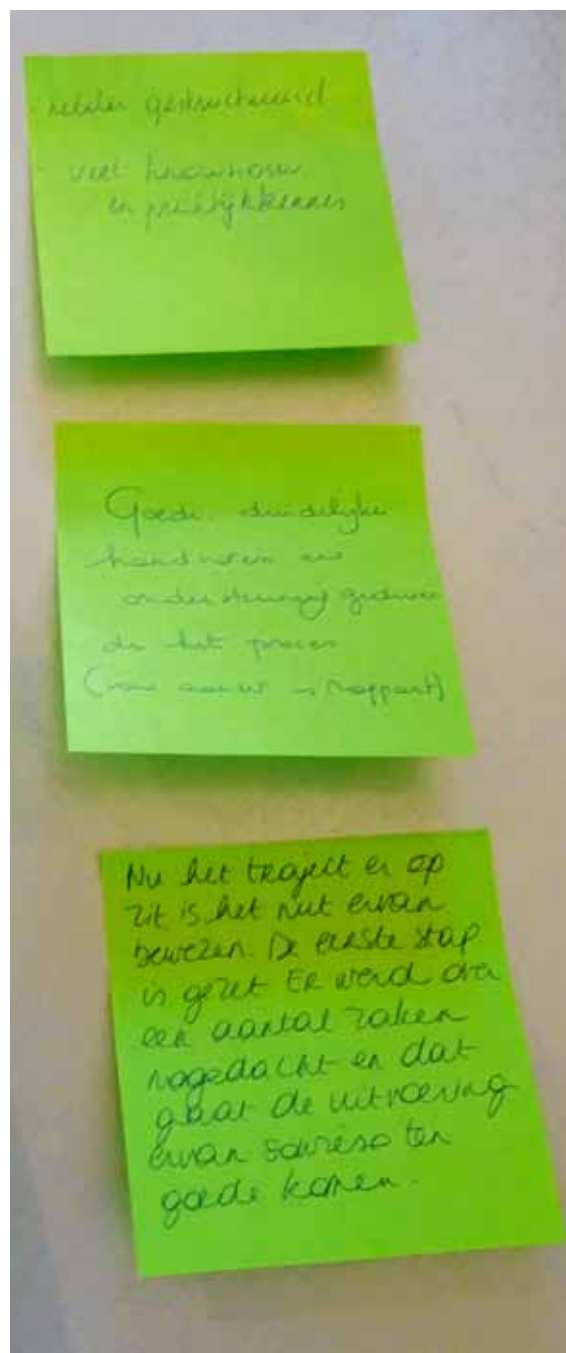 - helder gestructureerd
- veel knowhow
en praktijkkennis
Goede duidelijke
handvaten en
ondersteuning gedurende
de het proces
(rapport)
Nu het traject er op
zit is het nut ervan
bewezen. De eerste stap
is gezet Er werd over
een aantal zaken
nagedacht en dat
gaat de uitvoering
ervan sowieso ten
goede komen.